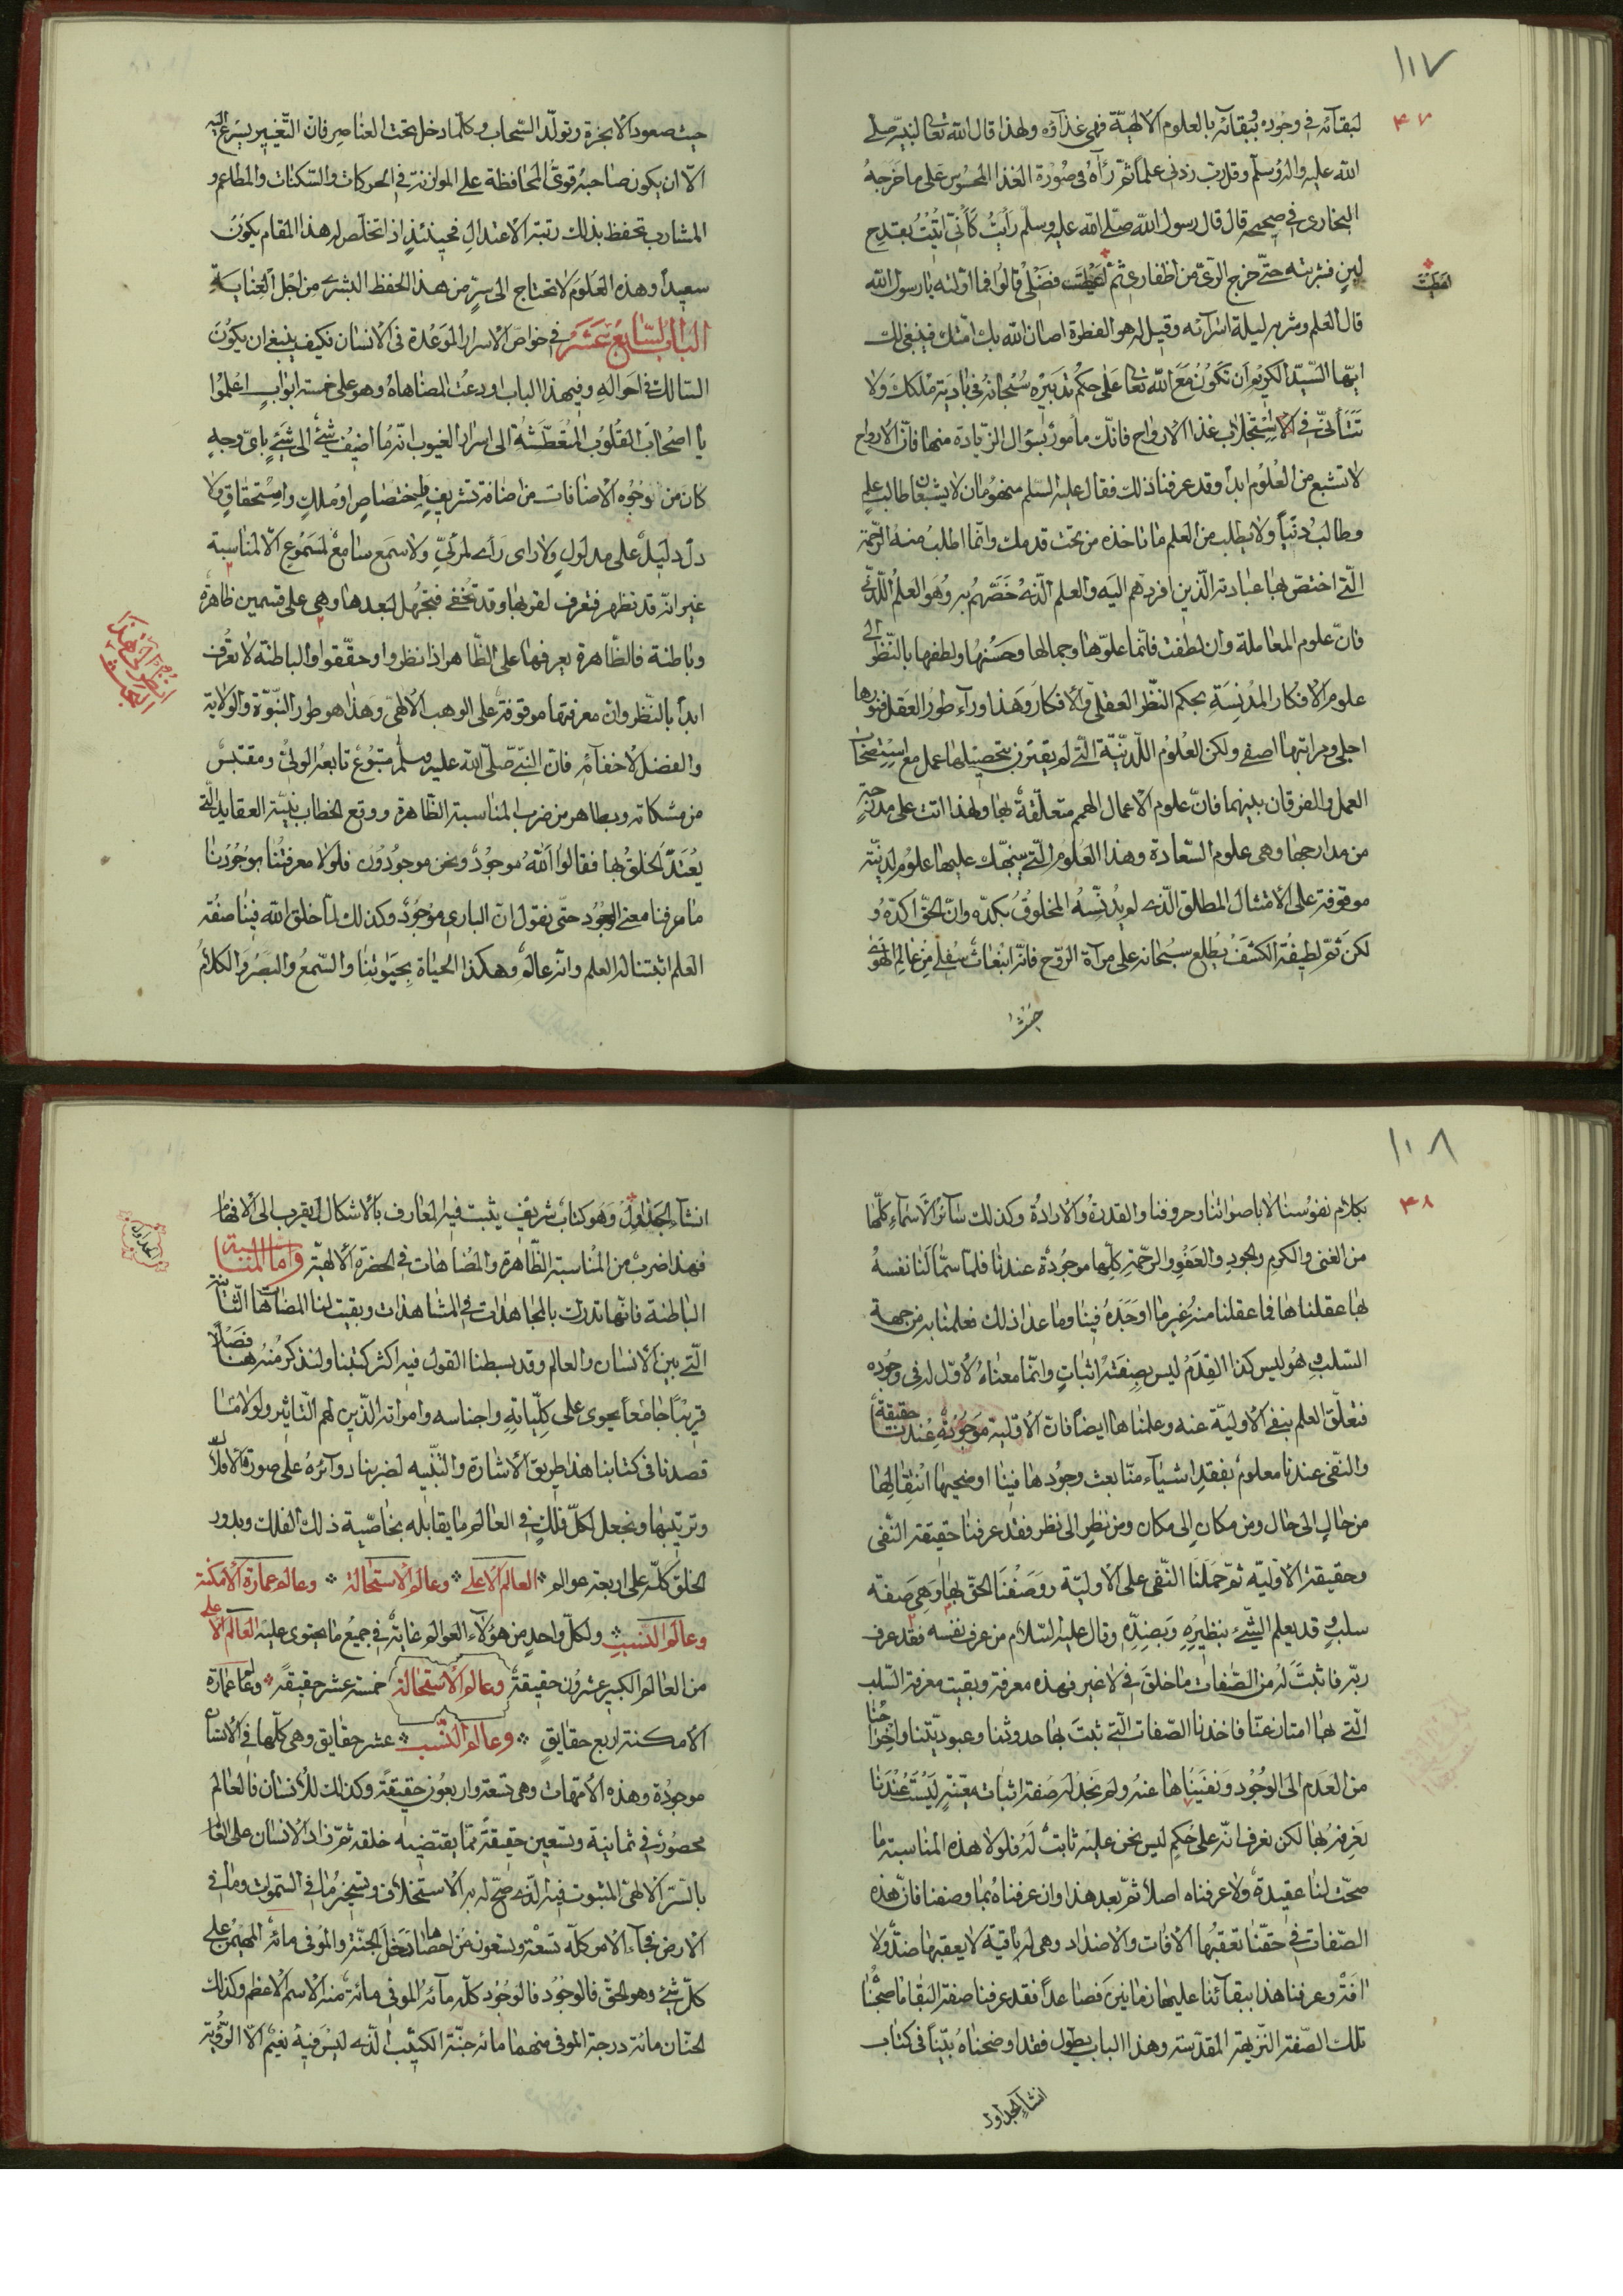 ١٠٧
٤٧
لبقائه في وجوده وبقائه بالعلوم الالهيّة فهى غذاؤه ولهذا قال الله تعالى لنبيّه صلى
الله عليه واله وسلم وقل رب زدني علماً ثم رآه في صورة الغذا المحسوس على ما خرجه
البخارى في صحيحه قال قال رسول الله صلى الله عليه وسلم رأيت كأنى اتيت بقدح
لبن فشربته حتّى خرج الرىّ من اظفارى ثم اعطيت فضلى قالوا فما اولته يا رسول الله
اعطيت
قال العلم وشربه ليلة اسرائه وقيل له هو الفطرة اصاب الله بك امتك فينبغى لك
ايها السيّد الكريم أن تكون مع الله تعالى على حكم تدبيره سبحانه في بادية ملكك ولا
تتأنّى في الاستجلاب غذا الارواح فانك مأمور بسؤال الزيادة منها فانّ الارواح
لا تشبع من العلوم ابداً وقد عرفنا ذلك فقال عليه السلم منهومان لا يشبعان طالب علم
وطالب دنيا ولا يطلب من العلم ما تاخذه من تحت قدمك وانّما اطلب منه الرحمة
الّتي اختصّ بها عباده الّذين افردهم اليه والعلم الّذى خصّهم به وهو العلم اللّدنّى
فانّ علوم المعاملة وان لطفت فانّما علوّها وجمالها وحسنها ولطفها بالنّظر الى
علوم الافكار المدنسة بحكم النظر العقلى والافكار وهذا وراء طور العقل فنورها
اجلى ومراتبها اصفى ولكن العلوم اللّدنّيّة الّتى لم يقترن بتحصيلها عمل مع استصحاب
العمل والفرقان بينهما فانّ علوم الاعمال الهمم متعلّقة بها ولهذا اتت على مدرجة
من مدارجها وهى علوم السّعادة وهذا العلوم الّتى ينبّهك عليها علوم لدنيّة
موقوفة على الامتثال المطلق الّذى لم يدنّسه المخلوق بكدّه وانّ الحقّ اكدّه و
لكن ثمّ لطيفة الكشف يطلع سبحانه على مرآة الروح فانّه انبعاث سفلى من عالم الهوى
حيث
حيث صعود الابخرة وتولّد السّحاب وكلّما دخل تحت العناصر فانّ التّغيير يسرع اليه
الّا ان يكون صاحبه قوىّ المحافظة على الموازنة في الحركات والسّكنات والمطاعم و
المشارب تحفظ بذلك رتبة الاعتدال فحينئذٍ اذا تخلّص له هذا المقام يكون
سعيداً وهذه العلوم لا تحتاج الى سرّ من هذا الحفظ البشرى من اجل العناية
الباب السّابع عشر في خواصّ الاسرار الموعدة في الانسان فكيف ينبغى ان يكون
السّالك في احواله وفي هذا الباب اودعت المضاهاة وهو على خمسة ابواب اعلموا
يا اصحاب القلوب المتعطّشة الى اسرار الغيوب انّه ما اضيف شئ الى شئ باىّ وجه
كان من وجوه الاضافات من اضافة تشريفٍ واختصاص او ملكٍ واستحقاق ولا
دلّ دليل على مدلول ولا راى راءٍ لمرئىٍّ ولا سمع سامع لمسموع الّا لمناسبة
غير انّه قد تظهر فتعرف لقربها وقد تخفى فتجهل لبعدها وهى على قسمين ظاهرة
وباطنة فالظّاهرة يعرفها على الظّاهر اذا نظروا وحقّقوا والباطنة لا تعرف
انظر الى هذا البحث
ابداً بالنّظر وان معرفتها موقوفة على الوهب الالهىّ وهذا هو طور النّبوّة والولاية
والفضل لا خفاء به فانّ النّبىّ صلى الله عليه وسلّم متبوع تابعه الولىّ ومقتبس
من مشكاته وبظاهر من ضرب المناسبة الظّاهرة ووقع الخطاب بنيّة العقايد الّتى
تعبّد الخلق بها فقالوا الله موجود ونحن موجودون فلولا معرفتنا بوجودنا
ما عرفنا معنى الوجود حتّى نقول انّ البارى موجود وكذلك لمّا خلق الله فينا صفة
العلم اثبتنا له العلم وانّه عالم وهكذا الحياة بحيوتنا والسّمع والبصر والكلام
١٠٨
٤٨
بكلام نفوسنا لا باصواتنا وحروفنا والقدرة والارادة وكذلك سائر الاسماء كلّها
من الغنى والكرم والجود والعفو والرحمة كلّها موجودة عندنا فلمّا سمّا لنا نفسه
بها عقلناها فما عقلنا منه غير ما اوجده فينا وما عدا ذلك فعلمنا به من جهة
السّلب وهو ليس كذا القدم ليس بصفة اثبات وانّما معناه لا اوّل له في وجوده
فتعلّق العلم بنفى الاوليّة عنه وعلمناها ايضاً فانّ الاوّلية موجودة عندنا حقيقة
والنّفى عندنا معلوم بفقد اشياء منّا بعث وجودها فينا اوضحيها انتقالها
من حالٍ الى حال ومن مكان الى مكان ومن نظر الى نظر فقد عرفنا حقيقة النفى
وحقيقة الاوّليّه ثمّ حملنا النّفى على الاوليّة ووصفنا الحقّ بها وهى صفة
سلب وقد يعلم الشّئ بنظيره وبضدّه وقال عليه السّلام من عرف نفسه فقد عرف
ربّه فاثبت له من الصّفات ما خلق في لا غير فهذه معرفة وبقيت معرفة السّلب
الّتى لها امتاز عنّا فاخذنا الصّفات الّتى ثبت بها حدوثنا وعبوديّتنا واخراجنا
من العدم الى الوجود ونفيناها عنه ولم نجد له صفة اثبات معيّنة ليست عندنا
نعرفه بها لكن نعرف انّه على حكم ليس نحن عليه ثابت له فلولا هذه المناسبة ما
صحّت لنا عقيدة ولا عرفناه اصلاً ثمّ بعد هذا وان عرفناه بما وصفنا فانّ هذه
الصّفات في حقّنا تعقبها الافات والاضداد وهى له باقية لا يعقبها ضدّ ولا
افة وعرفنا هذا ببقائنا عليها زمانين فصاعداً فقد عرفنا صفة البقا ما صحّبنا
تلك الصّفة النّزيهة المقدّسة وهذا الباب يطول فقد اوضحناه بيّناً في كتاب
انشاء الجداول
انشاء الجداول وهو كتاب شريف يثبت فيه المعارف بالاشكال ليقرب الى الافهام
الجداول
فهذا ضرب من المناسبة الظّاهرة والمضاهات في الحضرة الالهيّة وامّا المناسبة
الباطنة فانّها تدرك بالمجاهدات والمشاهدات وبقيت لنا المضاهات الثّانية
الّتى بين الانسان والعالم وقد بسطنا القول فيه اكثر كتبنا ولنذكر منه هنا فصلاً
قريباً جامعاً يحوى على كلّياته واجناسه وامراته الّذين لهم التّاثير ولولا ما
قصدنا في كتابنا هذا طريق الاشارة والتّنبيه لضربنا دوائره على صورة الافلاك
وترتيبها ونجعل لكلّ فلك في العالم ما يقابله بخاصّية ذلك الفلك ويدور
الخلق كلّه على اربعة عوالم العالم الاعلى وعالم الاستحالة وعالم عمارة الامكنة
وعالم النّسب ولكلّ واحدٍ من هؤلاء العوالم غاية في جميع ما يحتوى عليه العالم الاعلى
من العالم الكبير عشرون حقيقة وعالم الاستحالة خمسة عشر حقيقة وعالم عمارة
الامكنة اربع حقايق وعالم النّسب عشر حقايق وهى كلّها في الانسان
موجودة وهذه الامّهات وهى تسعة واربعون حقيقة وكذلك للانسان فالعالم
محصور في ثمانية وتسعين حقيقة ممّا يقتضيه خلقه ثمّ زاد الانسان على العالم
بالسّرّ الالهىّ المثبوت فيه الّذى صحّ له به الاستخلاف وتسخير ما في السّموات وما في
الارض فجاء الامر كلّه تسعة وتسعون من احصاها دخل الجنّة والموفى مائة المهيمن على
كلّ شئ وهو الحقّ فالوجود فالوجود كلّه مائة الموفى مائة منه الاسم الاعظم وكذلك
الجنان مائة درجة الموفى منهما مائه جنّة الكثيب الّذى ليس فيه نعيم الّا الرّؤية